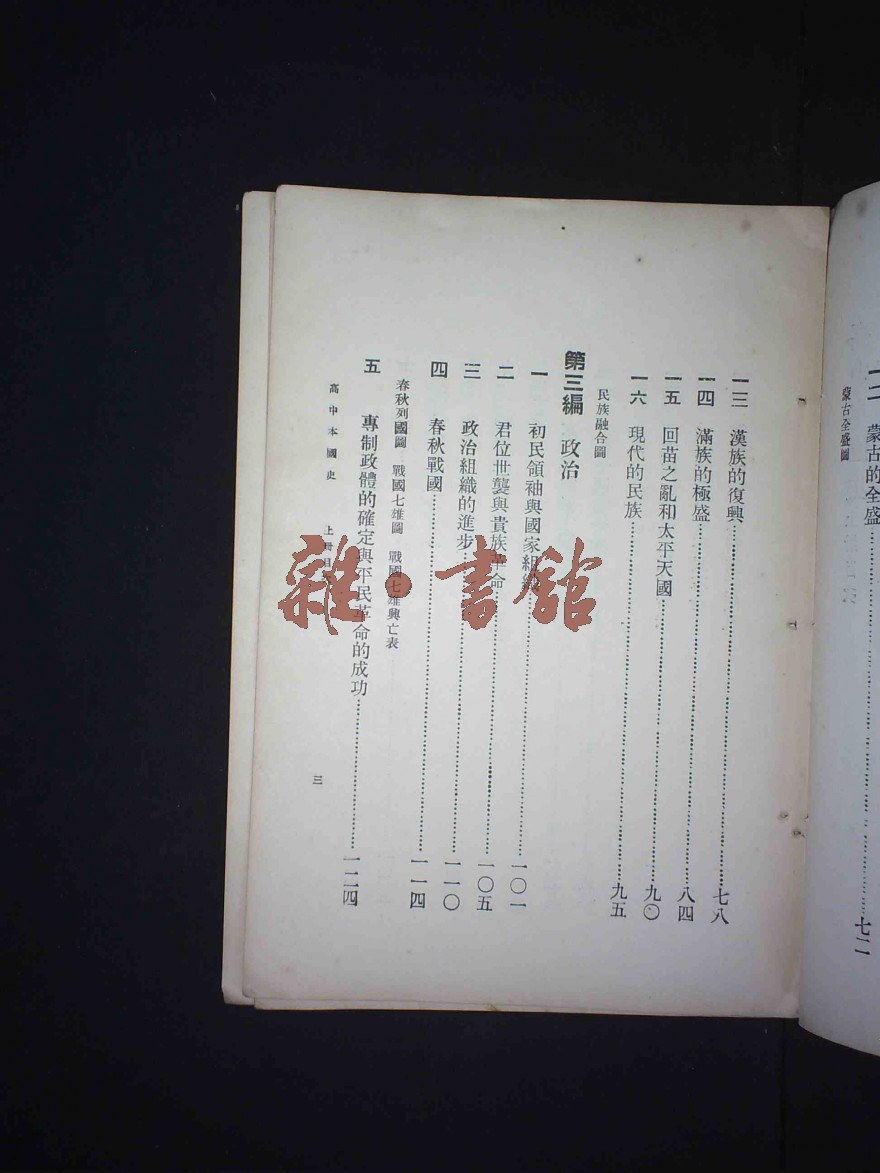 一二 蒙古的全盛……七二
蒙古全盛圖
一三 漢族的復興……七八
一四 滿族的極盛……八四
一五 回苗之亂和太平天國……九〇
一六 現代的民族……九五
民族融合圖
第三編 政治
一 初民領袖與國家組織……一〇一
二 君位世襲與貴族革命……一〇五
三 政治組織的進步……一一〇
四 春秋戰國……一一四
春秋列國圖 戰國七雄圖 戰國七雄興亡表
五 專制政體的確定與平民革命的成功……一二四
高中本國史 上冊目
三
雜·書館